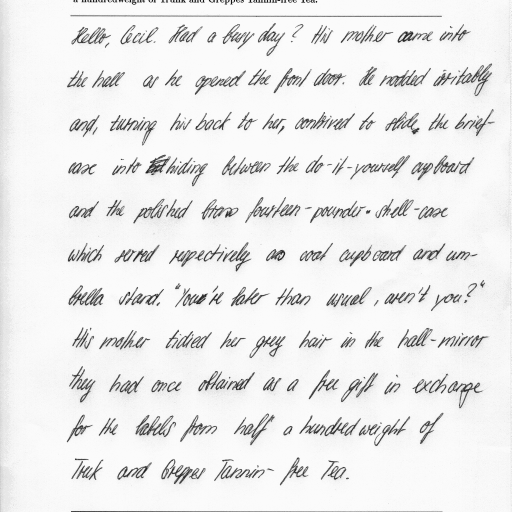 a hundredweight of Trunk and Greppes Tannin-free Tea.
Hello, Cecil. Had a busy day? His mother came into
the hall as he opened the front door. He nodded irritably
and, turning his back to her, contrived to slide, the brief-
case into hiding between the do-it-yourself cupboard
and the polished brass fourteen-pounder. shell-case
which served respectively as coat cupboard and um-
brella stand. "You're later than usual, aren't you?"
His mother tidied her grey hair in the hall-mirror
they had once obtained as a free gift in exchange
for the labels from half a hundredweight of
Truk and Greppes Tannin-free Tea.